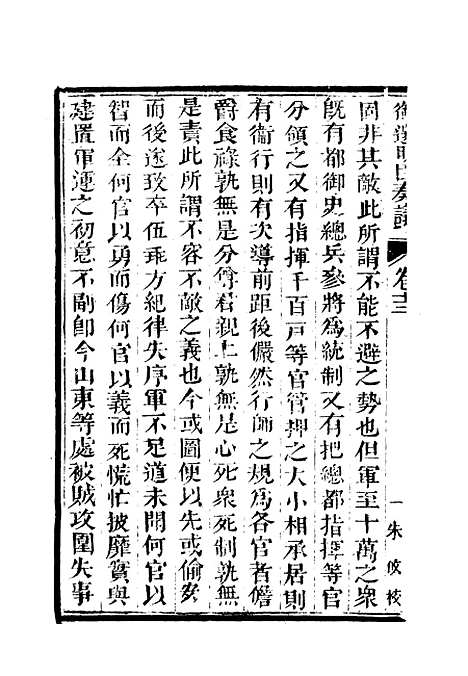 御選明臣奏議 卷十三 一 朱攽校
固非其敵此所謂不能不避之勢也但軍至十萬之衆
旣有都御史總兵參將為統制又有把總都指揮等官
分領之又有指揮千百戶等官管押之大小相承居則
有衞行則有次導前距後儼然行師之規為各官者儋
爵食祿孰無是分尊君親上孰無是心死衆死制孰無
是責此所謂不容不敵之義也今或圖便以先或偷安
而後遂致卒伍乖方紀律失序軍不足道未聞何官以
智而全何官以勇而傷何官以義而死慌忙披靡實與
建置軍運之初意不副卽今山東等處被賊攻圍失事